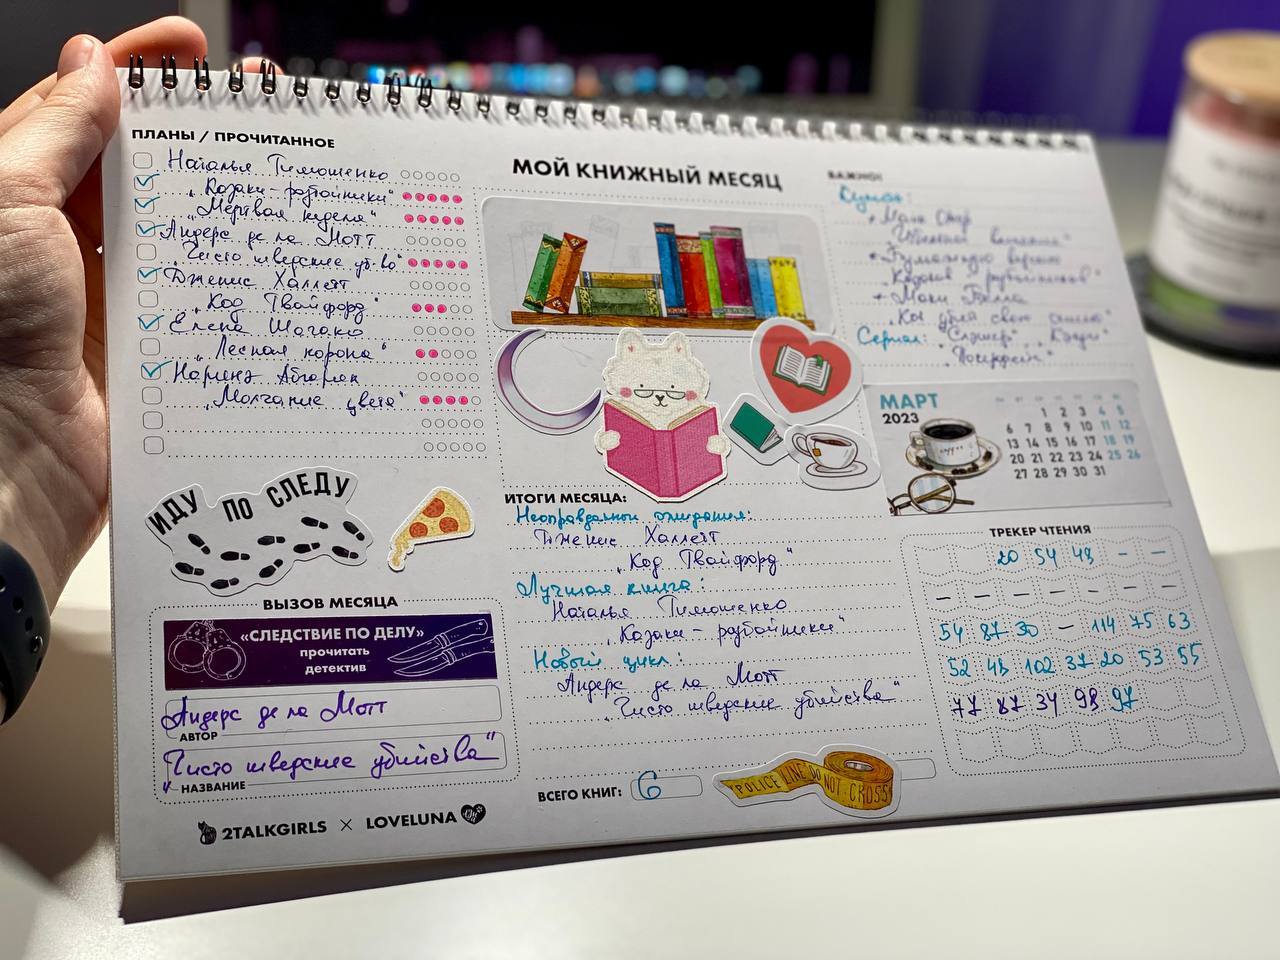 ПЛАНЫ / ПРОЧИТАННОЕ
Наталья Тимошенко
"Козаки-разбойники"
"Мертвая неделя"
Андерс де ла Мотт
"Чисто шведские уб-ва"
Дженис Халлетт
"Код Твайфорд"
Елена Шагако
"Лесная корона"
Наринэ Абгарян
"Молчание цвета"
МОЙ КНИЖНЫЙ МЕСЯЦ
ВАЖНО!
Купить:
"Козаков разбойников"
"Кто убил свою семью"
Сериал: "Слэшер"
МАРТ
2023
1 2 3 4 5
6 7 8 9 10 11 12
13 14 15 16 17 18 19
20 21 22 23 24 25 26
27 28 29 30 31
ИДУ ПО СЛЕДУ
ВЫЗОВ МЕСЯЦА
«СЛЕДСТВИЕ ПО ДЕЛУ»
прочитать
детектив
Андерс де ла Мотт
АВТОР
"Чисто шведские убийства"
НАЗВАНИЕ
2TALKGIRLS X LOVELUNA
ИТОГИ МЕСЯЦА:
Неоправданные ожидания:
Дженис Халлетт
"Код Твайфорд"
Лучшая книга:
Наталья Тимошенко
"Козаки-разбойники"
Новый цикл:
Андерс де ла Мотт
"Чисто шведские убийства"
ВСЕГО КНИГ: 6
POLICE LINE DO NOT CROSS
ТРЕКЕР ЧТЕНИЯ
20 54 48 – –
– – – – – – –
54 87 30 – 114 75 63
52 48 102 37 20 53 55
77 87 34 98 97